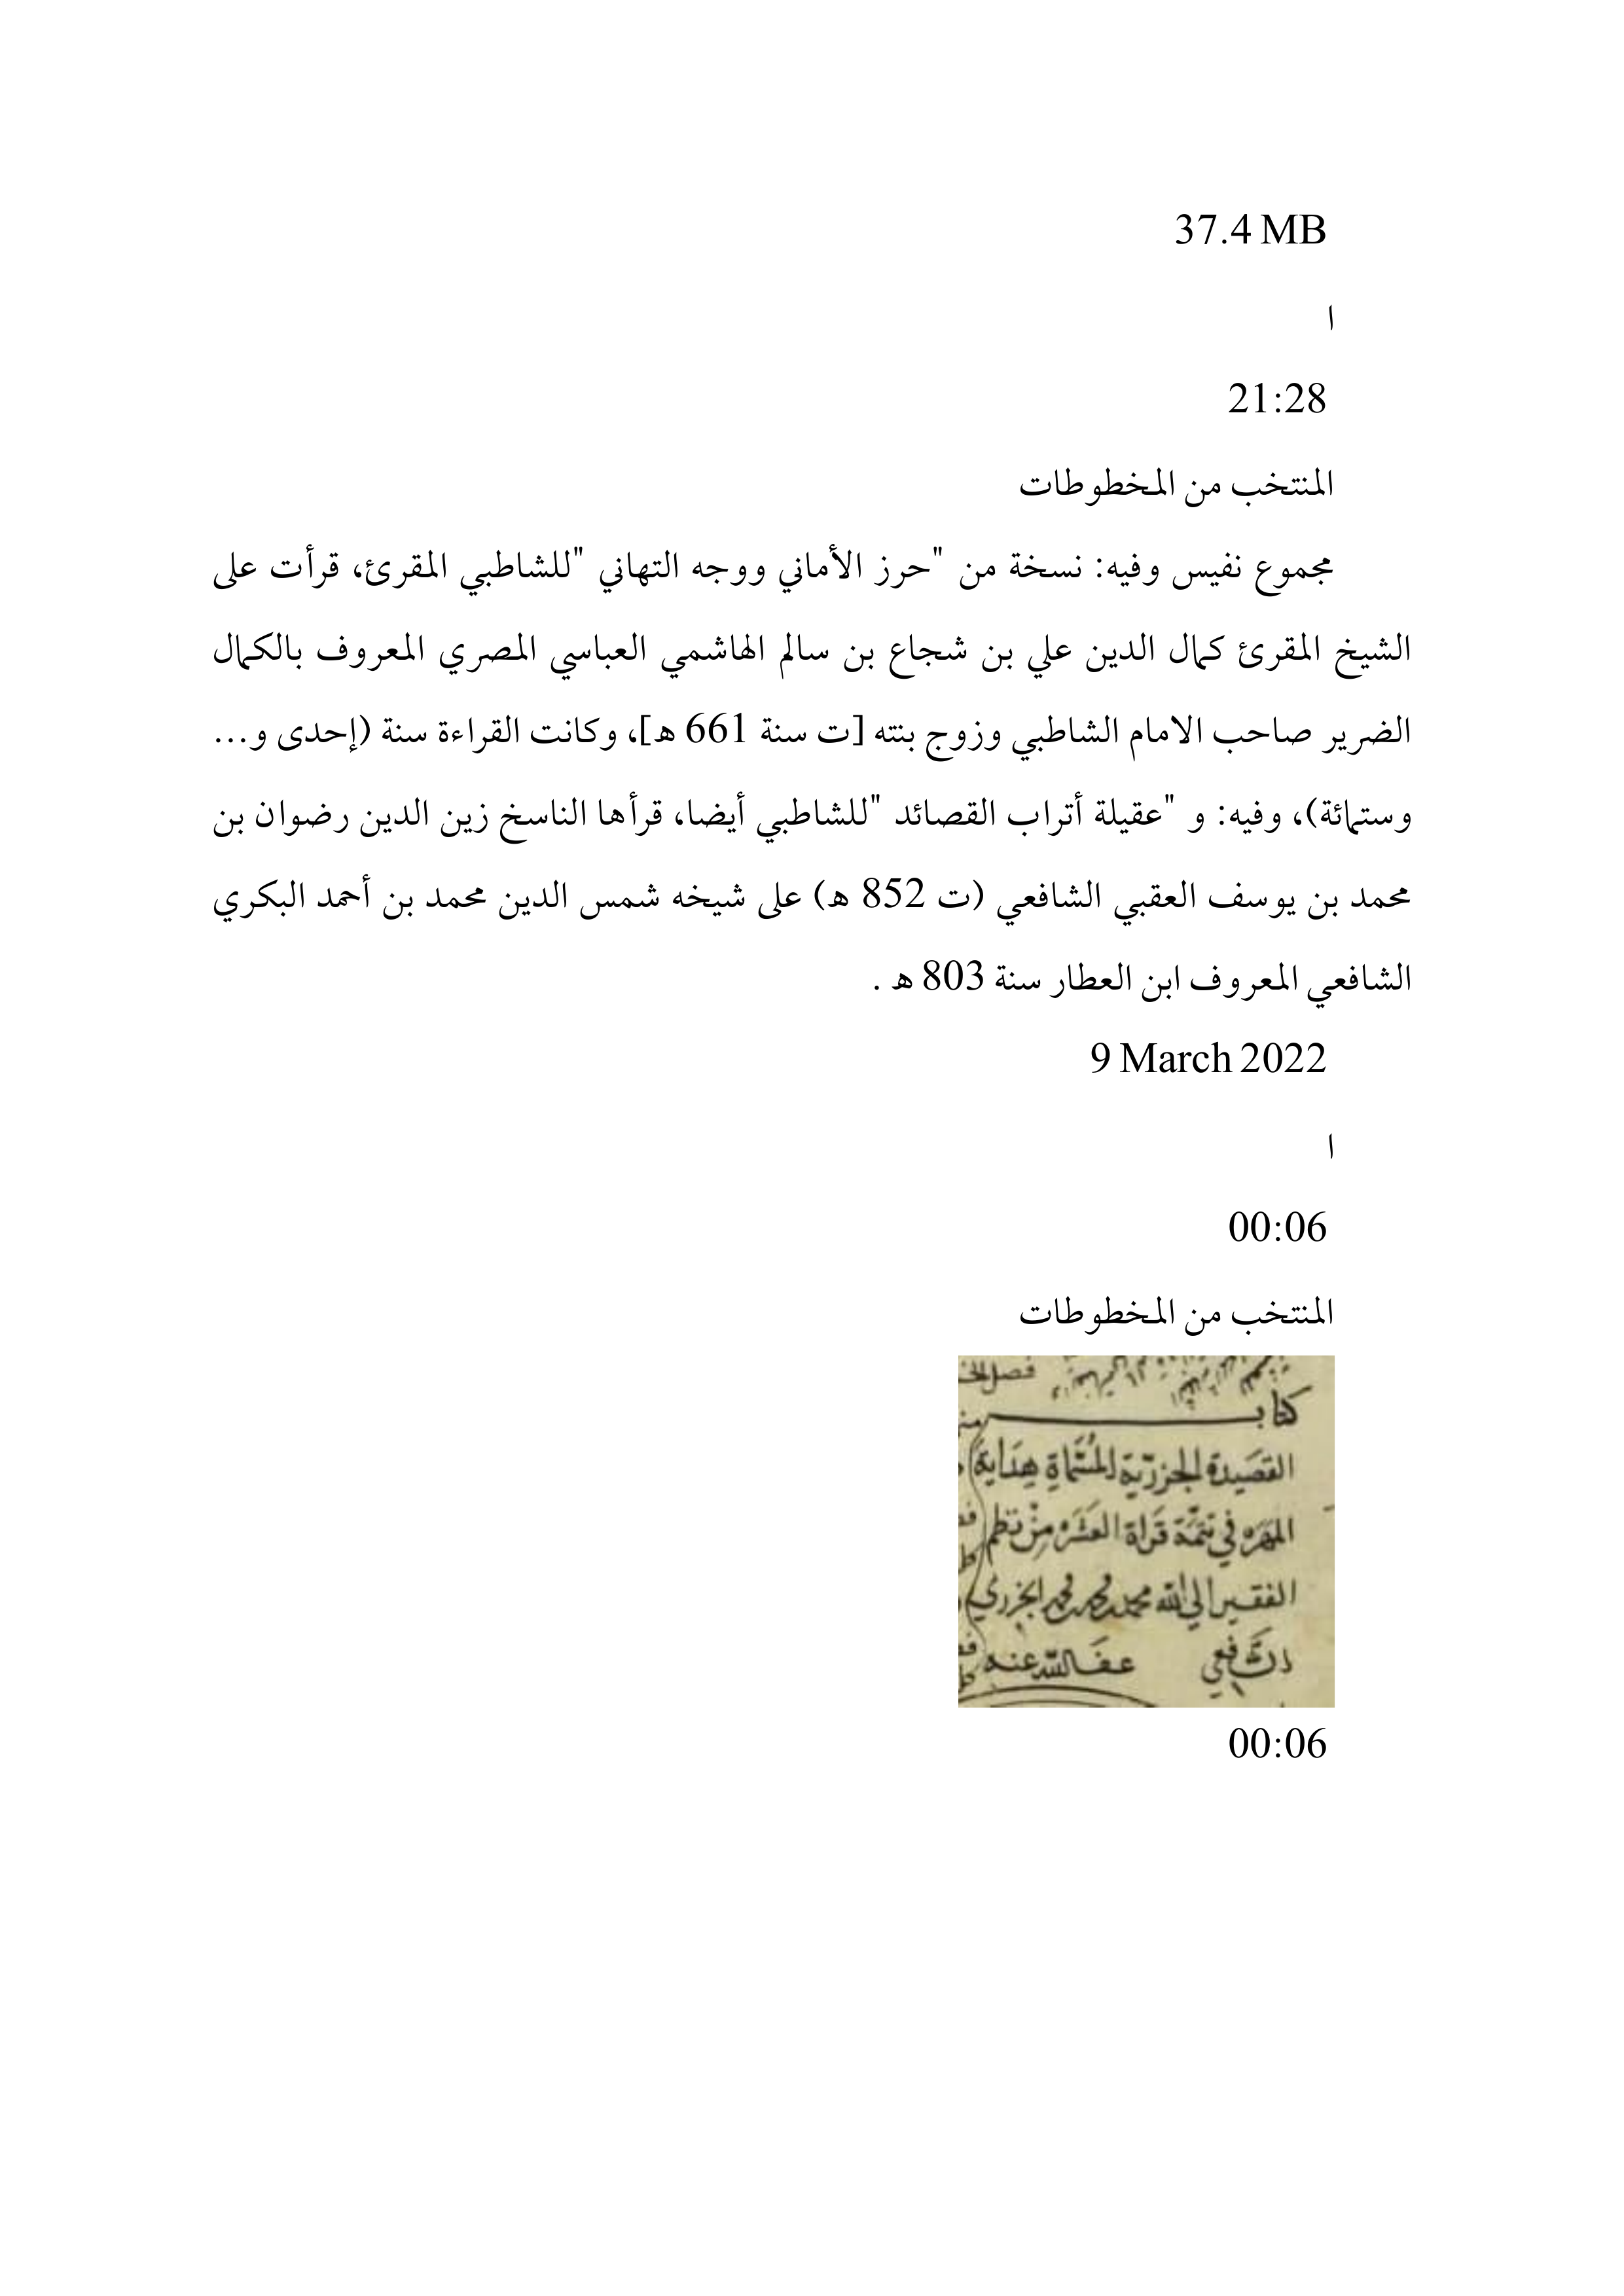 37.4 MB
ا
21:28
المنتخب من المخطوطات
مجموع نفيس وفيه: نسخة من "حرز الأماني ووجه التهاني "للشاطبي المقرئ، قرأت على
الشيخ المقرئ كمال الدين علي بن شجاع بن سالم الهاشمي العباسي المصري المعروف بالكمال
الضرير صاحب الامام الشاطبي وزوج بنته [ت سنة 661 ه]، وكانت القراءة سنة (إحدى و...
وستمائة)، وفيه: و "عقيلة أتراب القصائد "للشاطبي أيضا، قرأها الناسخ زين الدين رضوان بن
محمد بن يوسف العقبي الشافعي (ت 852 ه) على شيخه شمس الدين محمد بن أحمد البكري
الشافعي المعروف ابن العطار سنة 803 ه .
9 March 2022
ا
00:06
المنتخب من المخطوطات
كتاب
القصيدة الجزرية المسماة هداية
المهرة في تتمة قراة العشره من نظم
الفقير الي الله محمد محمد محمد الجزري
الشافعي عفا الله عنه
00:06